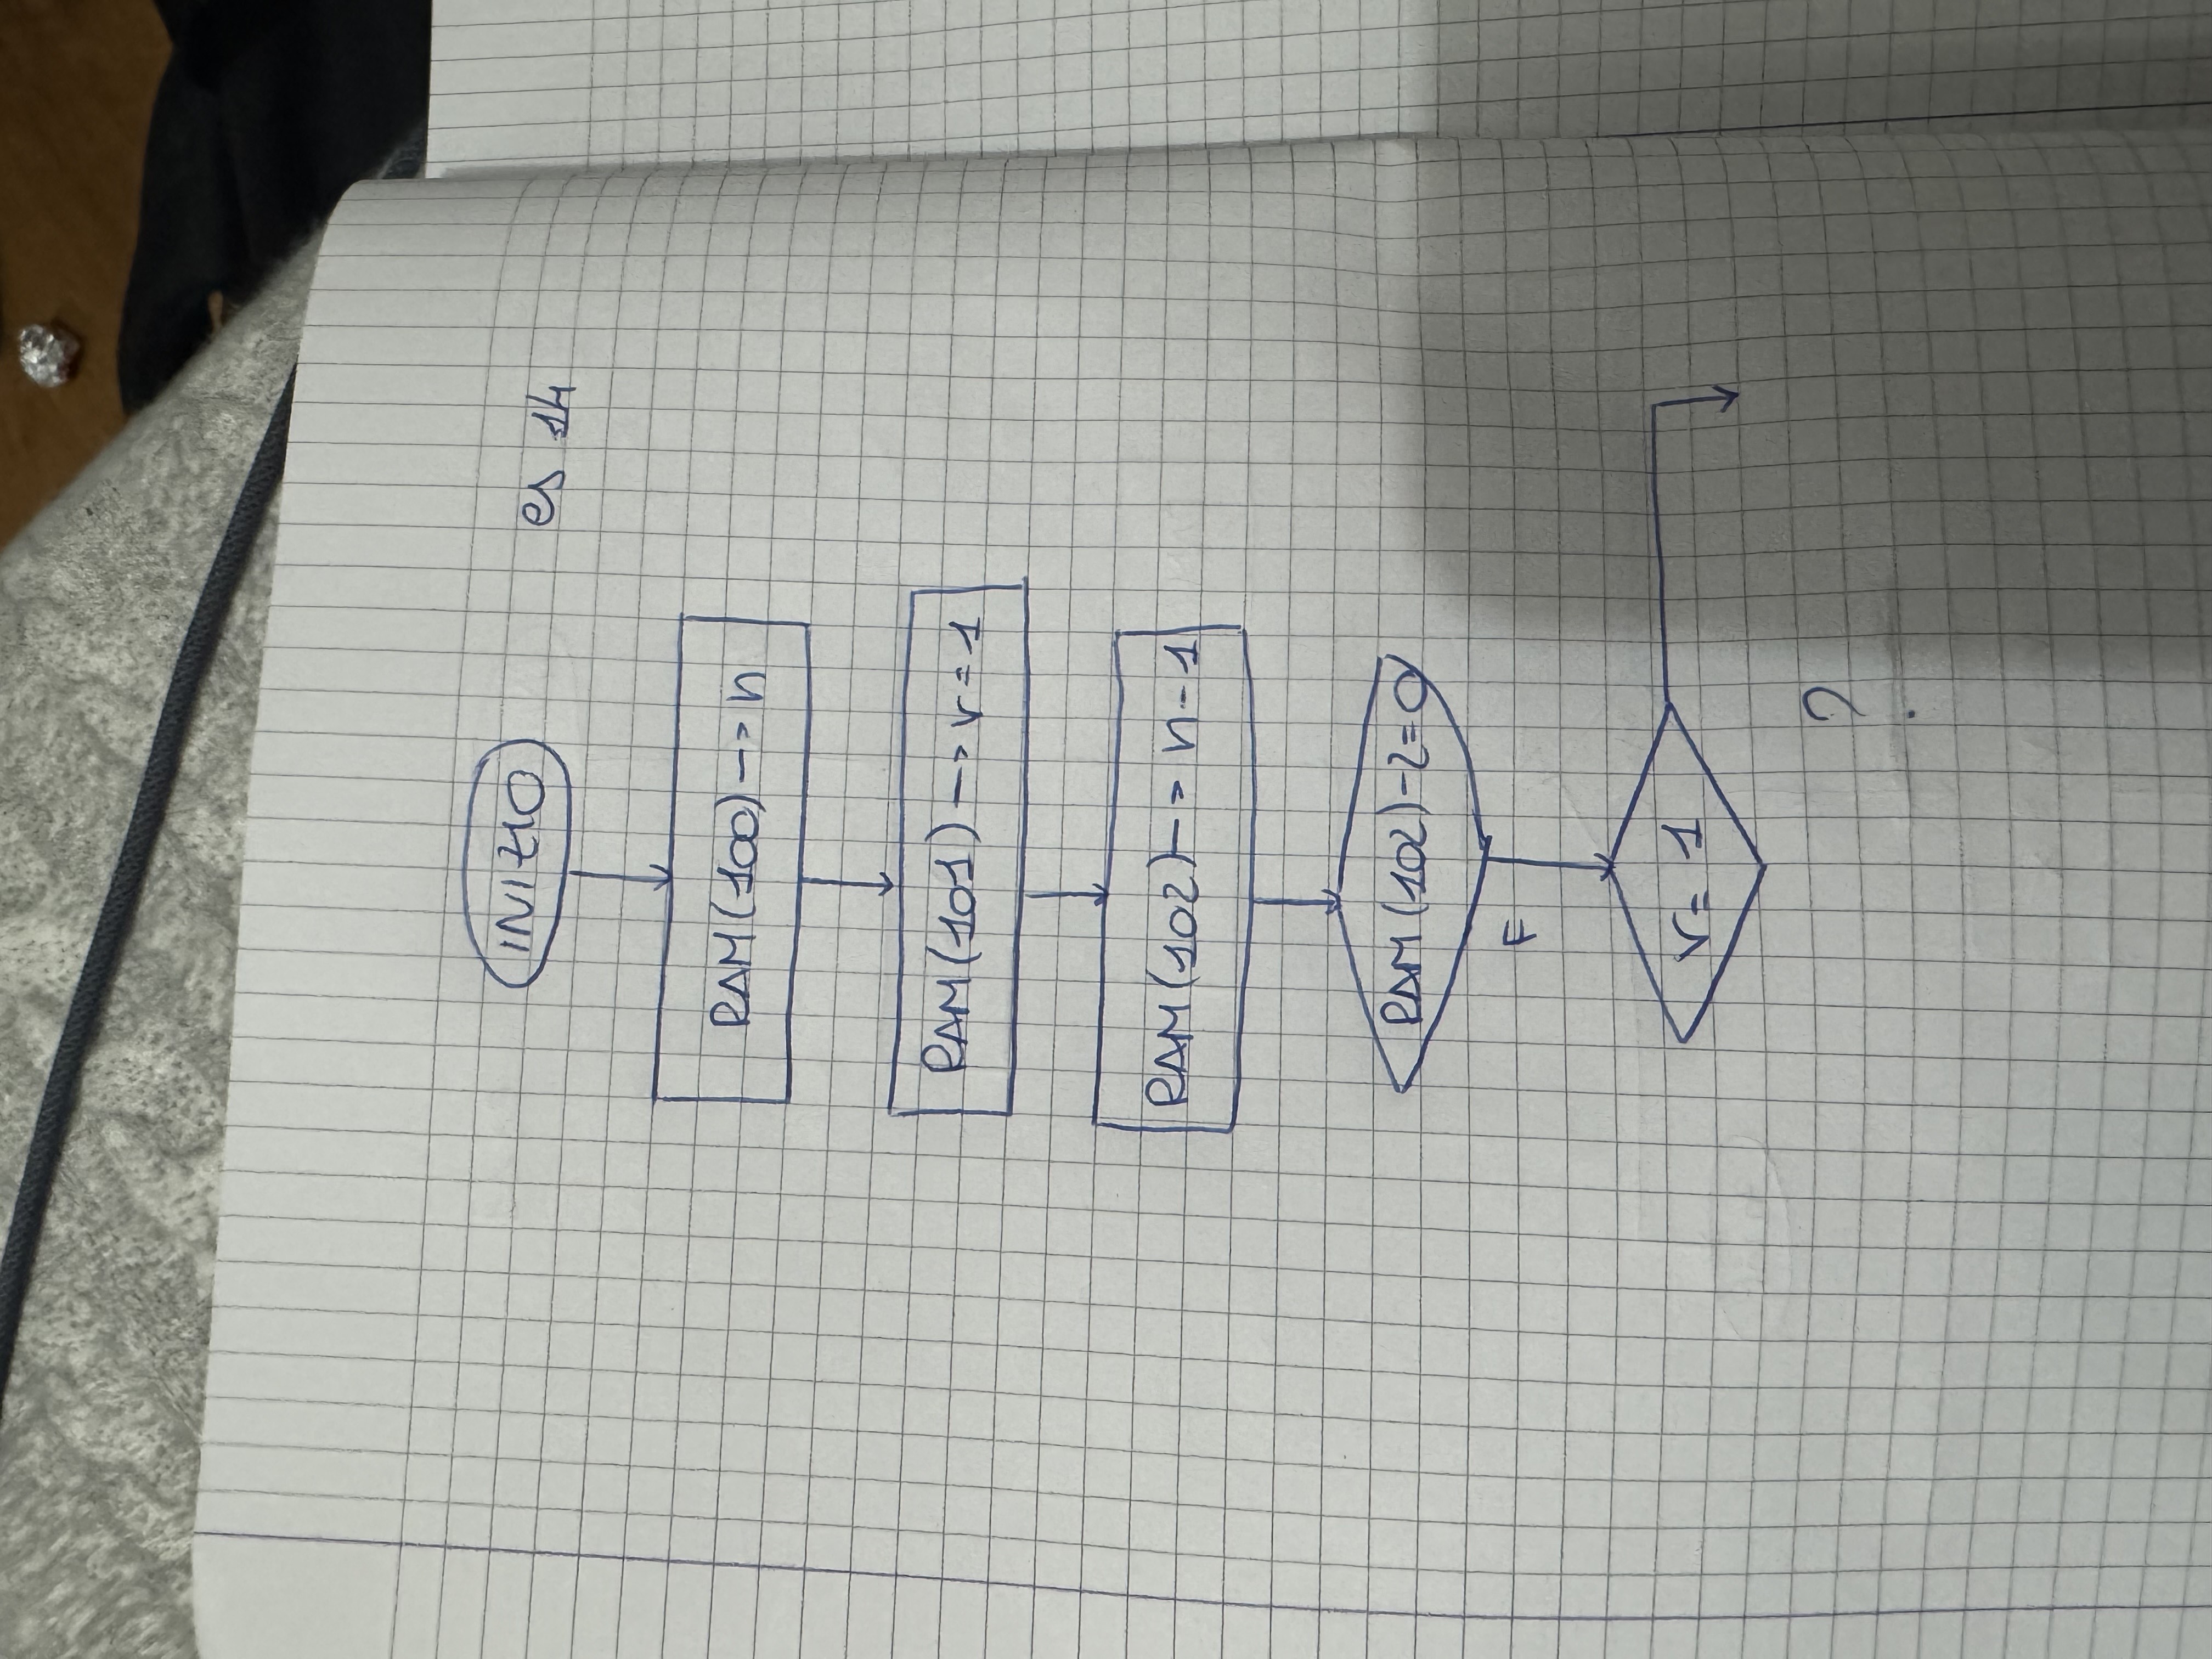 INIZIO
es 14
RAM(100) -> n
RAM(101) -> r = 1
RAM(102) -> n - 1
RAM(102)-2=0
F
r = 1
?